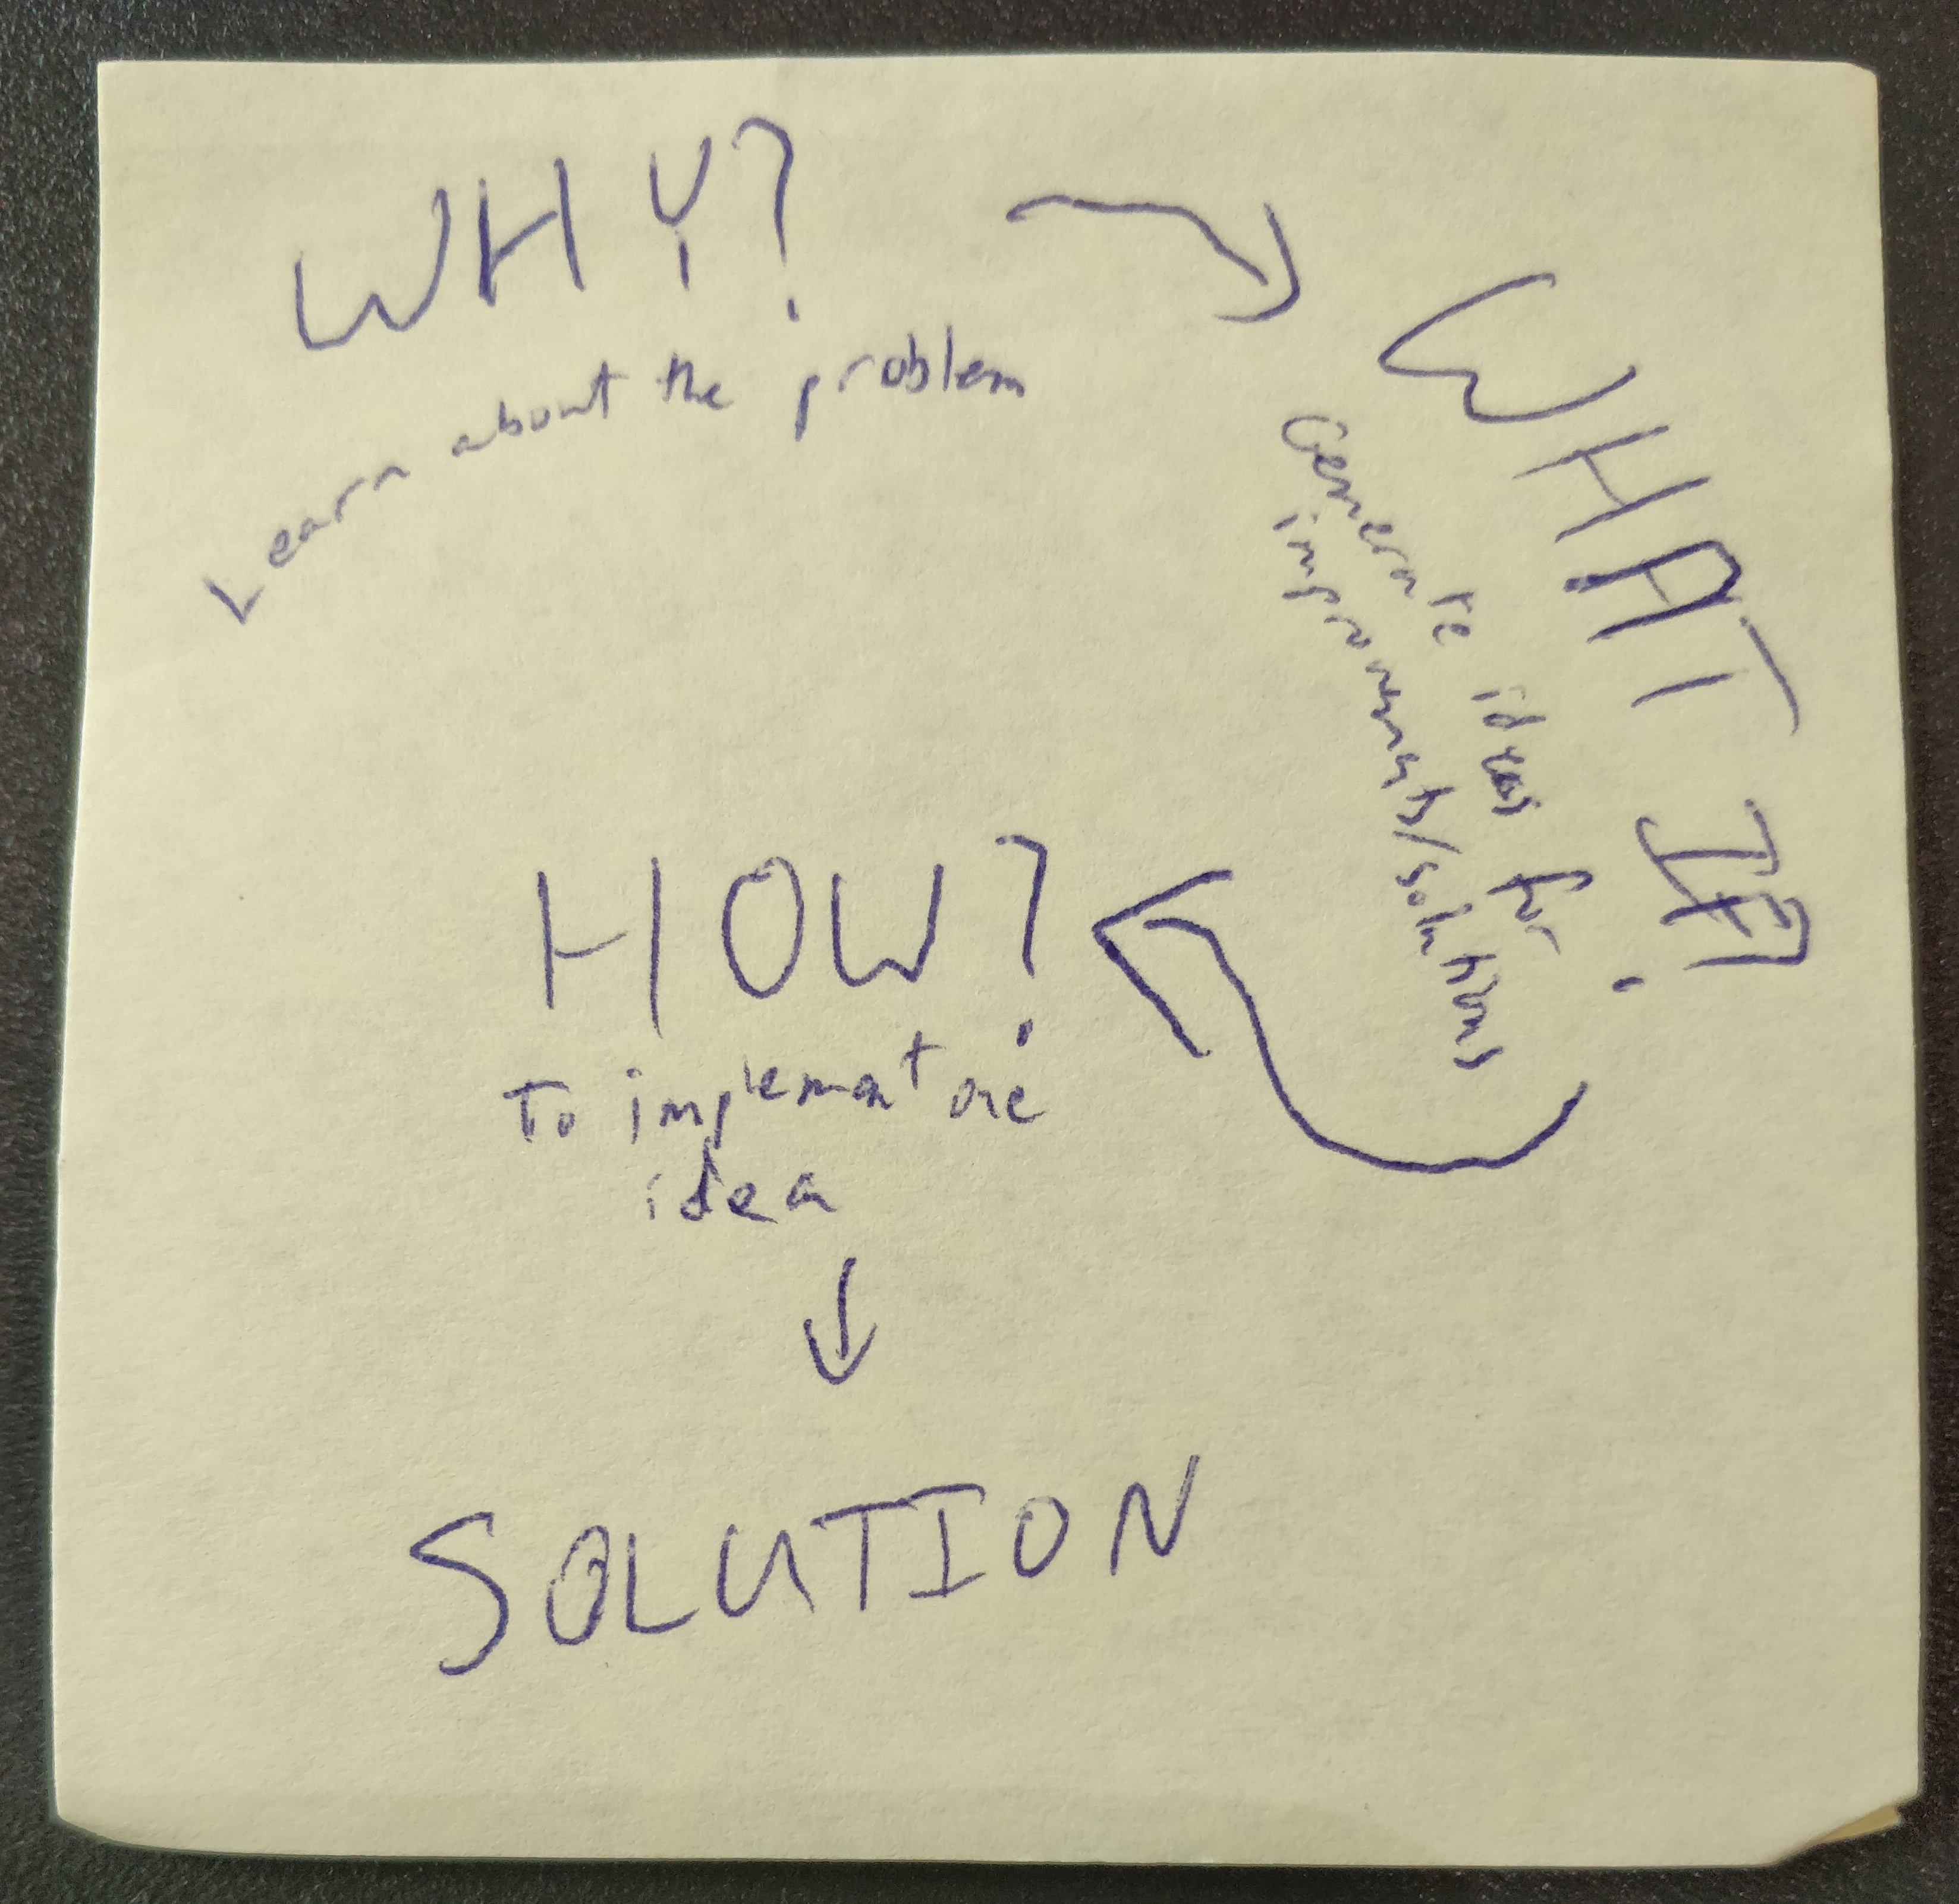 WHY?
Learn about the problem
WHAT IF?
Generate ideas for
improvements/solutions
HOW?
To implement one
idea
SOLUTION